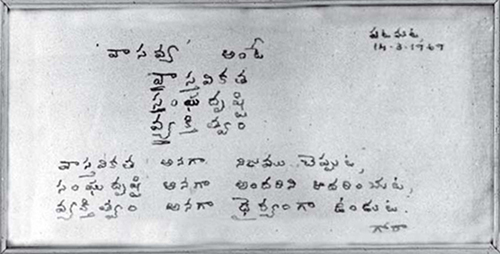 పటమట,
14-3-1969
వాసవ్య అంటే
వాస్తవికత
సంఘదృష్టి
వ్యక్తిత్వం
వాస్తవికత అనగా నిజము చెప్పుట,
సంఘదృష్టి అనగా అందరిని ఆదరించుట,
వ్యక్తిత్వం అనగా ధైర్యంగా ఉండుట.
గోరా